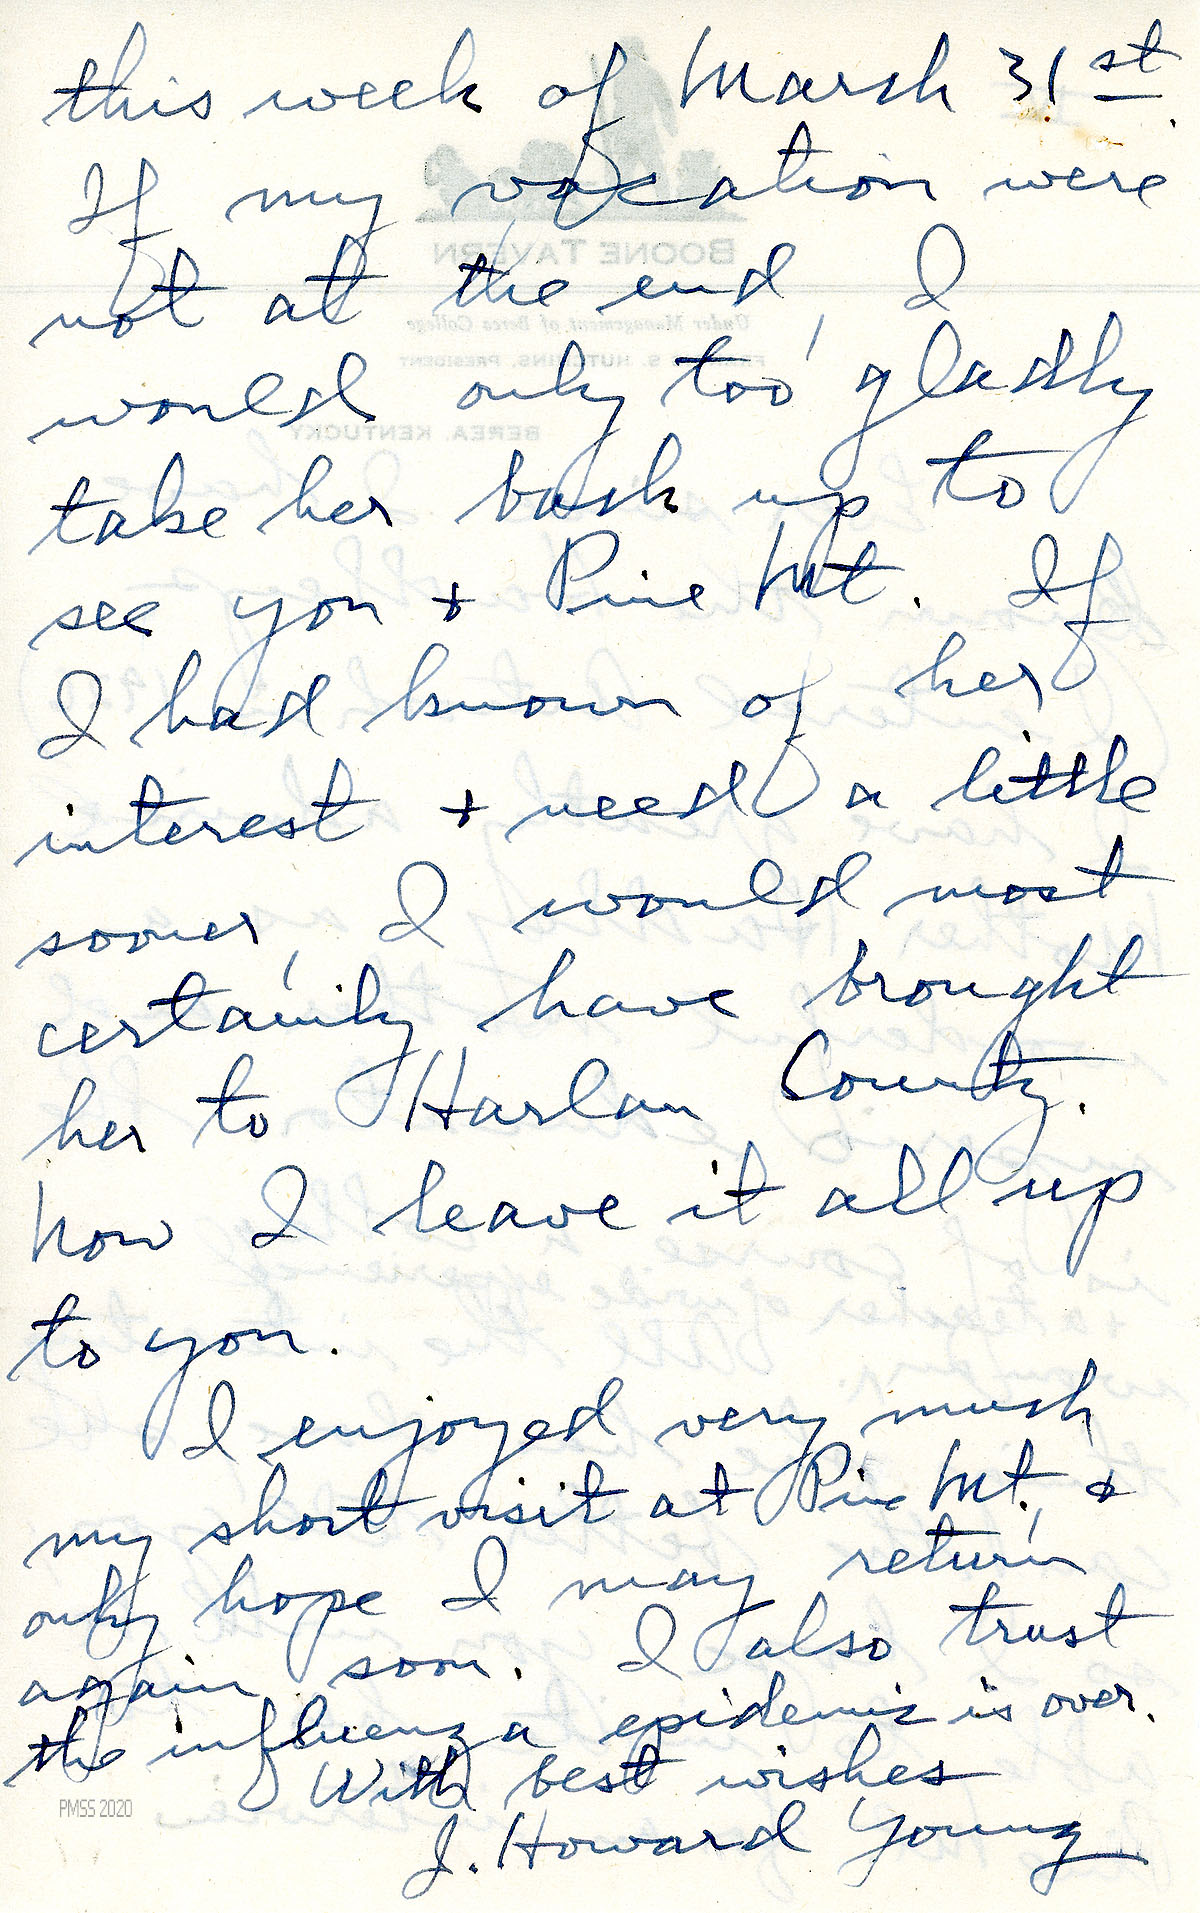 this week of March 31st.
If my vacation were
not at the end, I
would only too gladly
take her back up to
see you + Pine Mt. If
I had known of her
interest + need a little
sooner, I would most
certainly have brought
her to Harlan County.
Now I leave it all up
to you.
I enjoyed very much
my short visit at Pine Mt., +
only hope I may return
again soon. I also trust
the influenza epidemic is over.
With best wishes
J. Howard Young
PMSS 2020
BOONE TAVERN
Under Management of Berea College
FRANCIS S. HUTCHINS, PRESIDENT
BEREA, KENTUCKY